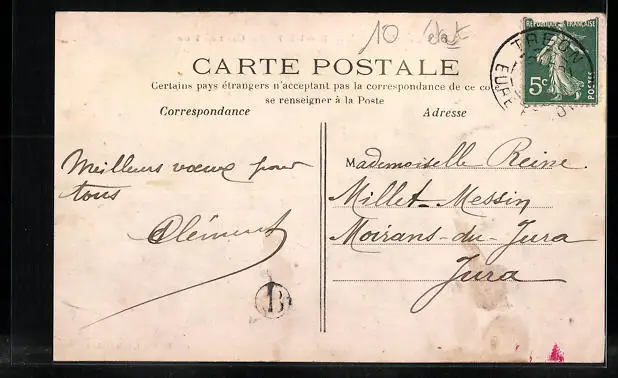 10
RÉPUBLIQUE FRANÇAISE
TREON
5c
POSTES
CARTE POSTALE
Certains pays étrangers n'acceptant pas la correspondance de ce co
se renseigner à la Poste
Correspondance
Adresse
Meilleurs vœux pour
tous
Clément
Mademoiselle Reine
Millet-Messin
Moirans-du-Jura
Jura
B